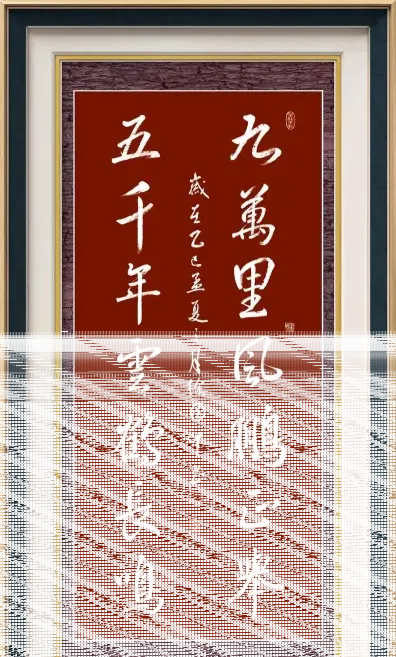 九萬里風鵬正舉
歲在乙巳孟夏月
五千年雲鶴長鳴